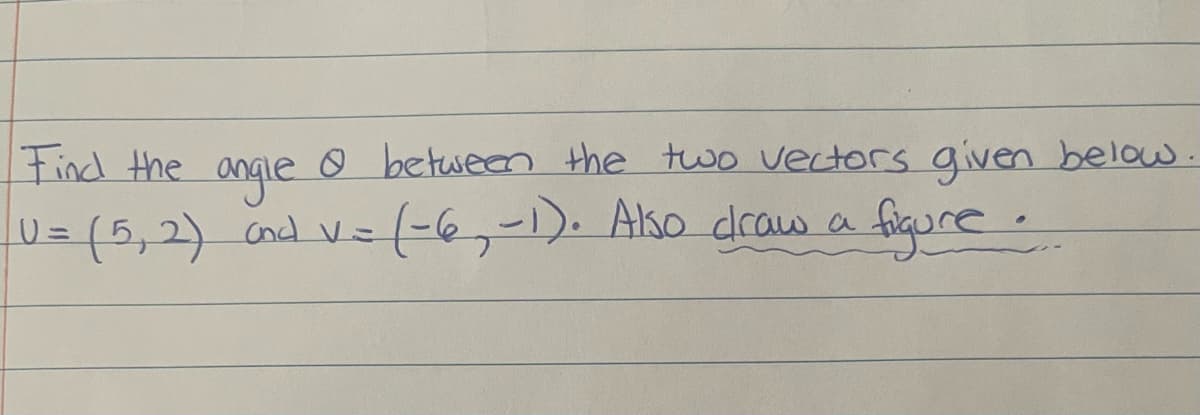 Find the angle θ between the two vectors given below.
U = (5, 2) and v = (-6, -1). Also draw a figure.